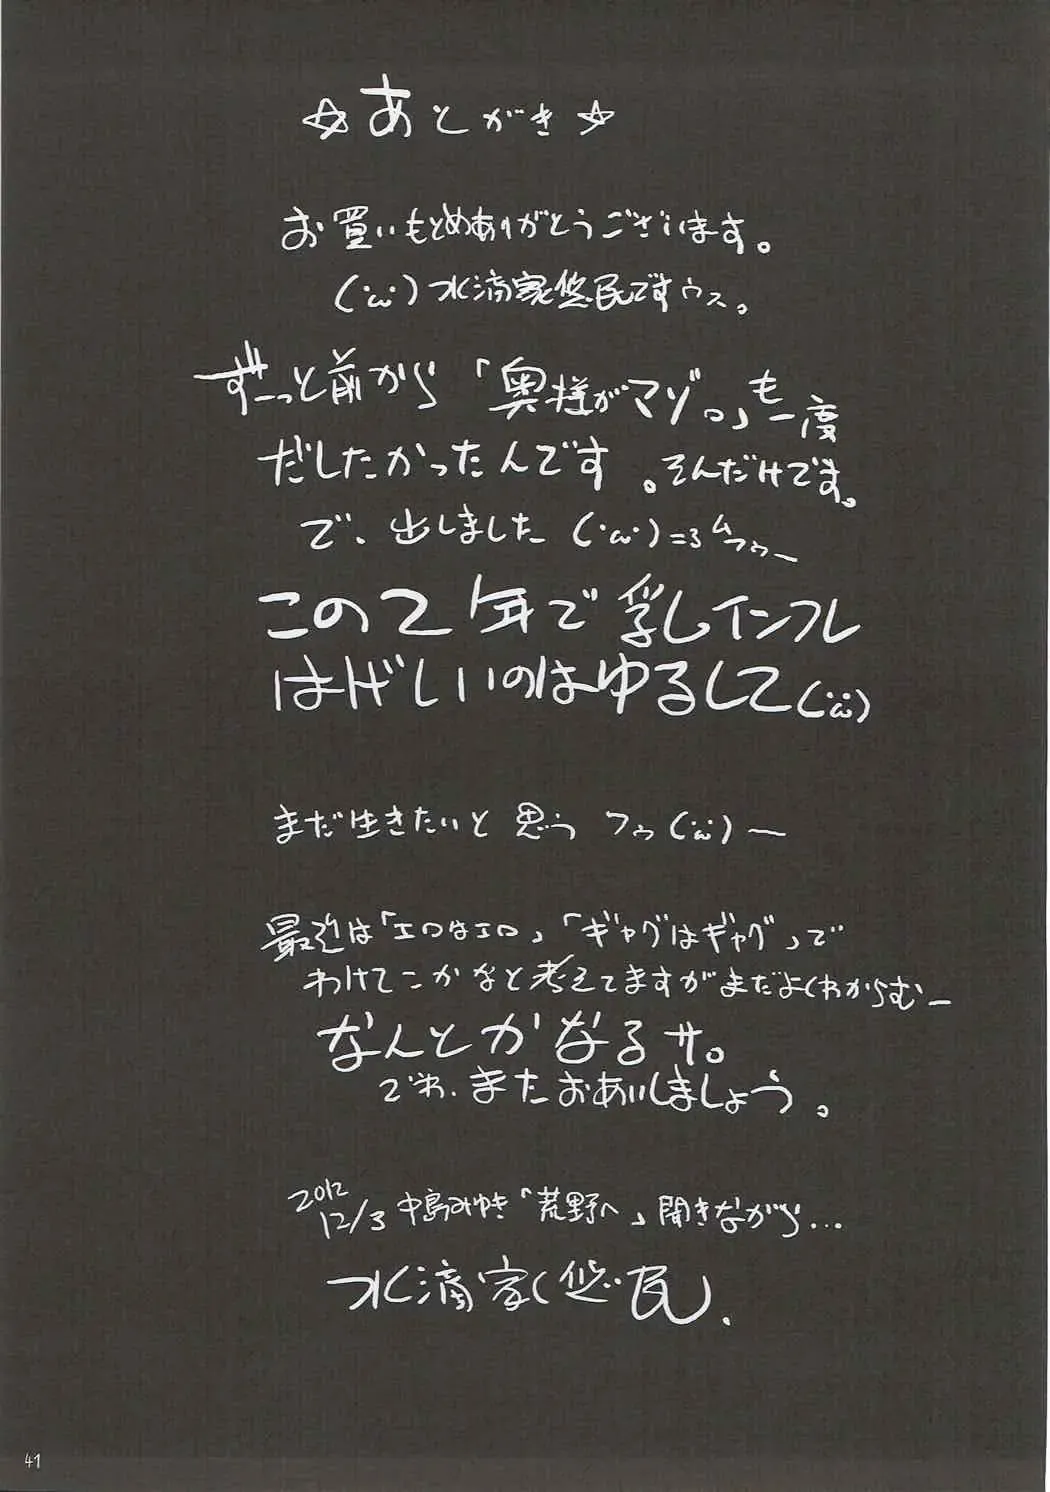 ☆あとがき☆
お買いもとめありがとうございます。
(´ω`)水滴家悠民ですウス。
ずーっと前から「奥様がマゾ。」も一度
だしたかったんです。そんだけです。
で、出しました(´ω`)=3ムフゥー
この2年で乳しインフレ
はげしいのはゆるして(´ω`)
まだ生きたいと思う フゥ(´ω`)ー
最近は「エロはエロ」「ギャグはギャグ」で
わけてこかなと考えてますがまだよくわからむー
なんとかなるサ。
でわ、またおあいしましょう。
2012
12/3 中島みゆき「荒野へ」聞きながら...
水滴家悠民.
41